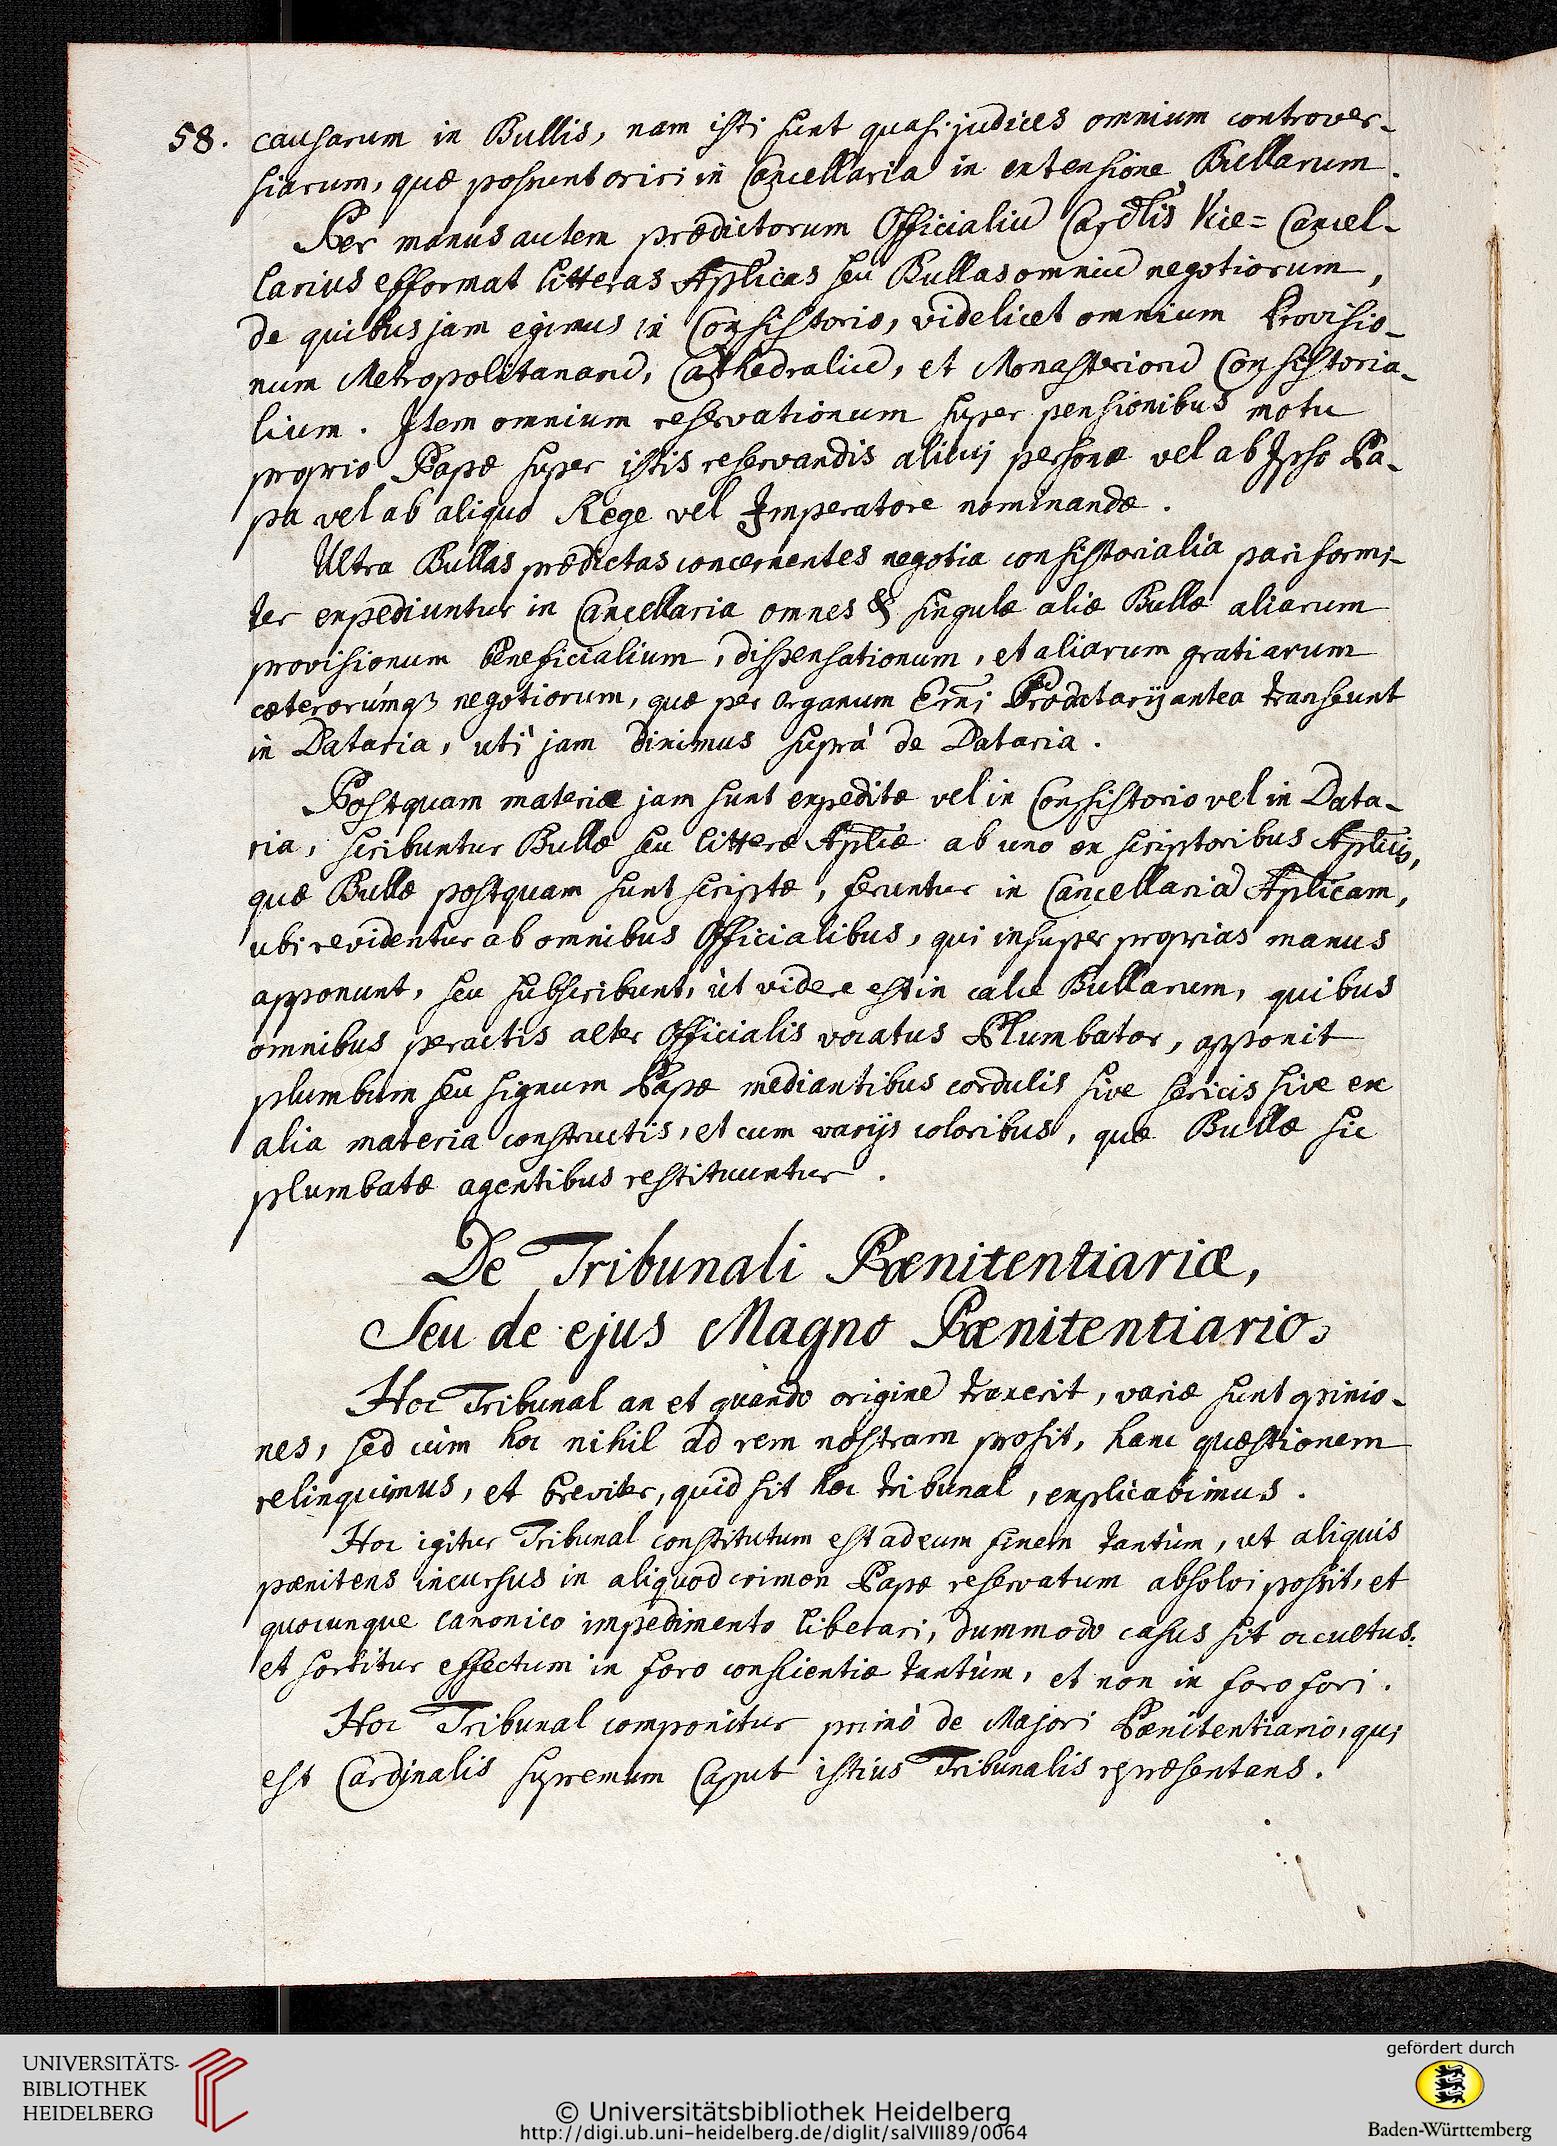 58. causarum in Bullis, nam isti sunt quasi judices omnium controver-
siarum, quæ possunt oriri in Cancellaria in extensione Bullarum.
Per manus autem prædictorum Officialiu Cardlis Vice= Cancel-
larius efformat litteras Aplicas seu Bullas omniu negotiorum,
de quibus jam egimus in Consistorio, videlicet omnium Provisio-
num Metropolitanaru, Cathedraliu, et Monasterioru Consistoria-
lium. Item omnium reservationum super pensionibus motu
proprio Papæ super istis reservandis alicuj personæ vel ab Ipso Pa-
pa vel ab aliquo Rege vel Imperatore nominandæ.
Ultra Bullas prædictas concernentes negotia consistorialia pariformi-
ter expediuntur in Cancellaria omnes & singulæ aliæ Bullæ aliarum
provisionum beneficialium, dispensationum, et aliarum gratiarum
cæterorúmqz negotiorum, quæ per organum Emi Prodatarij antea transeunt
in Dataria, uti jam diximus suprà de Dataria.
Postquam materiæ jam sunt expeditæ vel in Consistorio vel in Data-
ria, scribuntur Bullæ seu litteræ Apliæ ab uno ex scriptoribus Aplicis,
quæ Bullæ postquam sunt scriptæ, feruntur in Cancellaria Aplicam,
ubi revidentur ab omnibus Officialibus, qui insuper proprias manus
apponunt, seu subscribunt, ùt videre est in calce Bullarum, quibus
omnibus peractis alter Officialis vocatus Plumbator, apponit
plumbum seu signum Papæ mediantibus cordulis sive sericis sive ex
alia materia constructis, et cum varijs coloribus, quæ Bullæ sic
plumbatæ agentibus restituuntur.
De Tribunali Pænitentiariæ,
Seu de ejus Magno Pænitentiario,
Hoc Tribunal an et quando origine traxerit, variæ sunt opinio-
nes, sed cùm hoc nihil ad rem nostram prosit, hanc quæstionem
relinquimus, et breviter, quid sit hoc tribunal, explicabimus.
Hoc igitur Tribunal constitutum est ad eum finem tantùm, ut aliquis
pænitens incursus in aliquod crimen Papæ reservatum absolvi possit, et
quocunque canonico impedimento liberari, dummodo casus sit occultus:
et sortitur effectum in foro conscientiæ tantùm, et non in foro fori.
Hoc Tribunal componitur primò de Majori Pænitentiario, qui
est Cardinalis supremum Caput istius Tribunalis repræsentans.
UNIVERSITÄTS-
BIBLIOTHEK
HEIDELBERG
© Universitätsbibliothek Heidelberg
http://digi.ub.uni-heidelberg.de/diglit/salVIII89/0064
gefördert durch
Baden-Württemberg